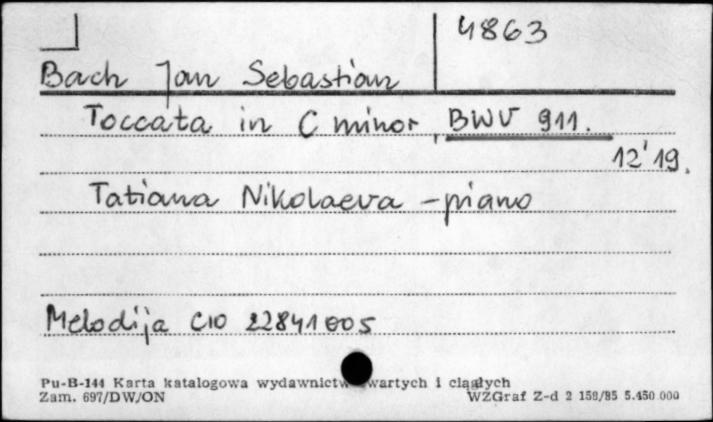 4863
Bach Jan Sebastian
Toccata in C minor, BWV 911.
12'19.
Tatiana Nikolaeva - piano
Melodija C10 22841005
Pu-B-144 Karta katalogowa wydawnictw zwartych i ciągłych
Zam. 697/DW/ON WZGraf Z-d 2 159/85 5.450.000